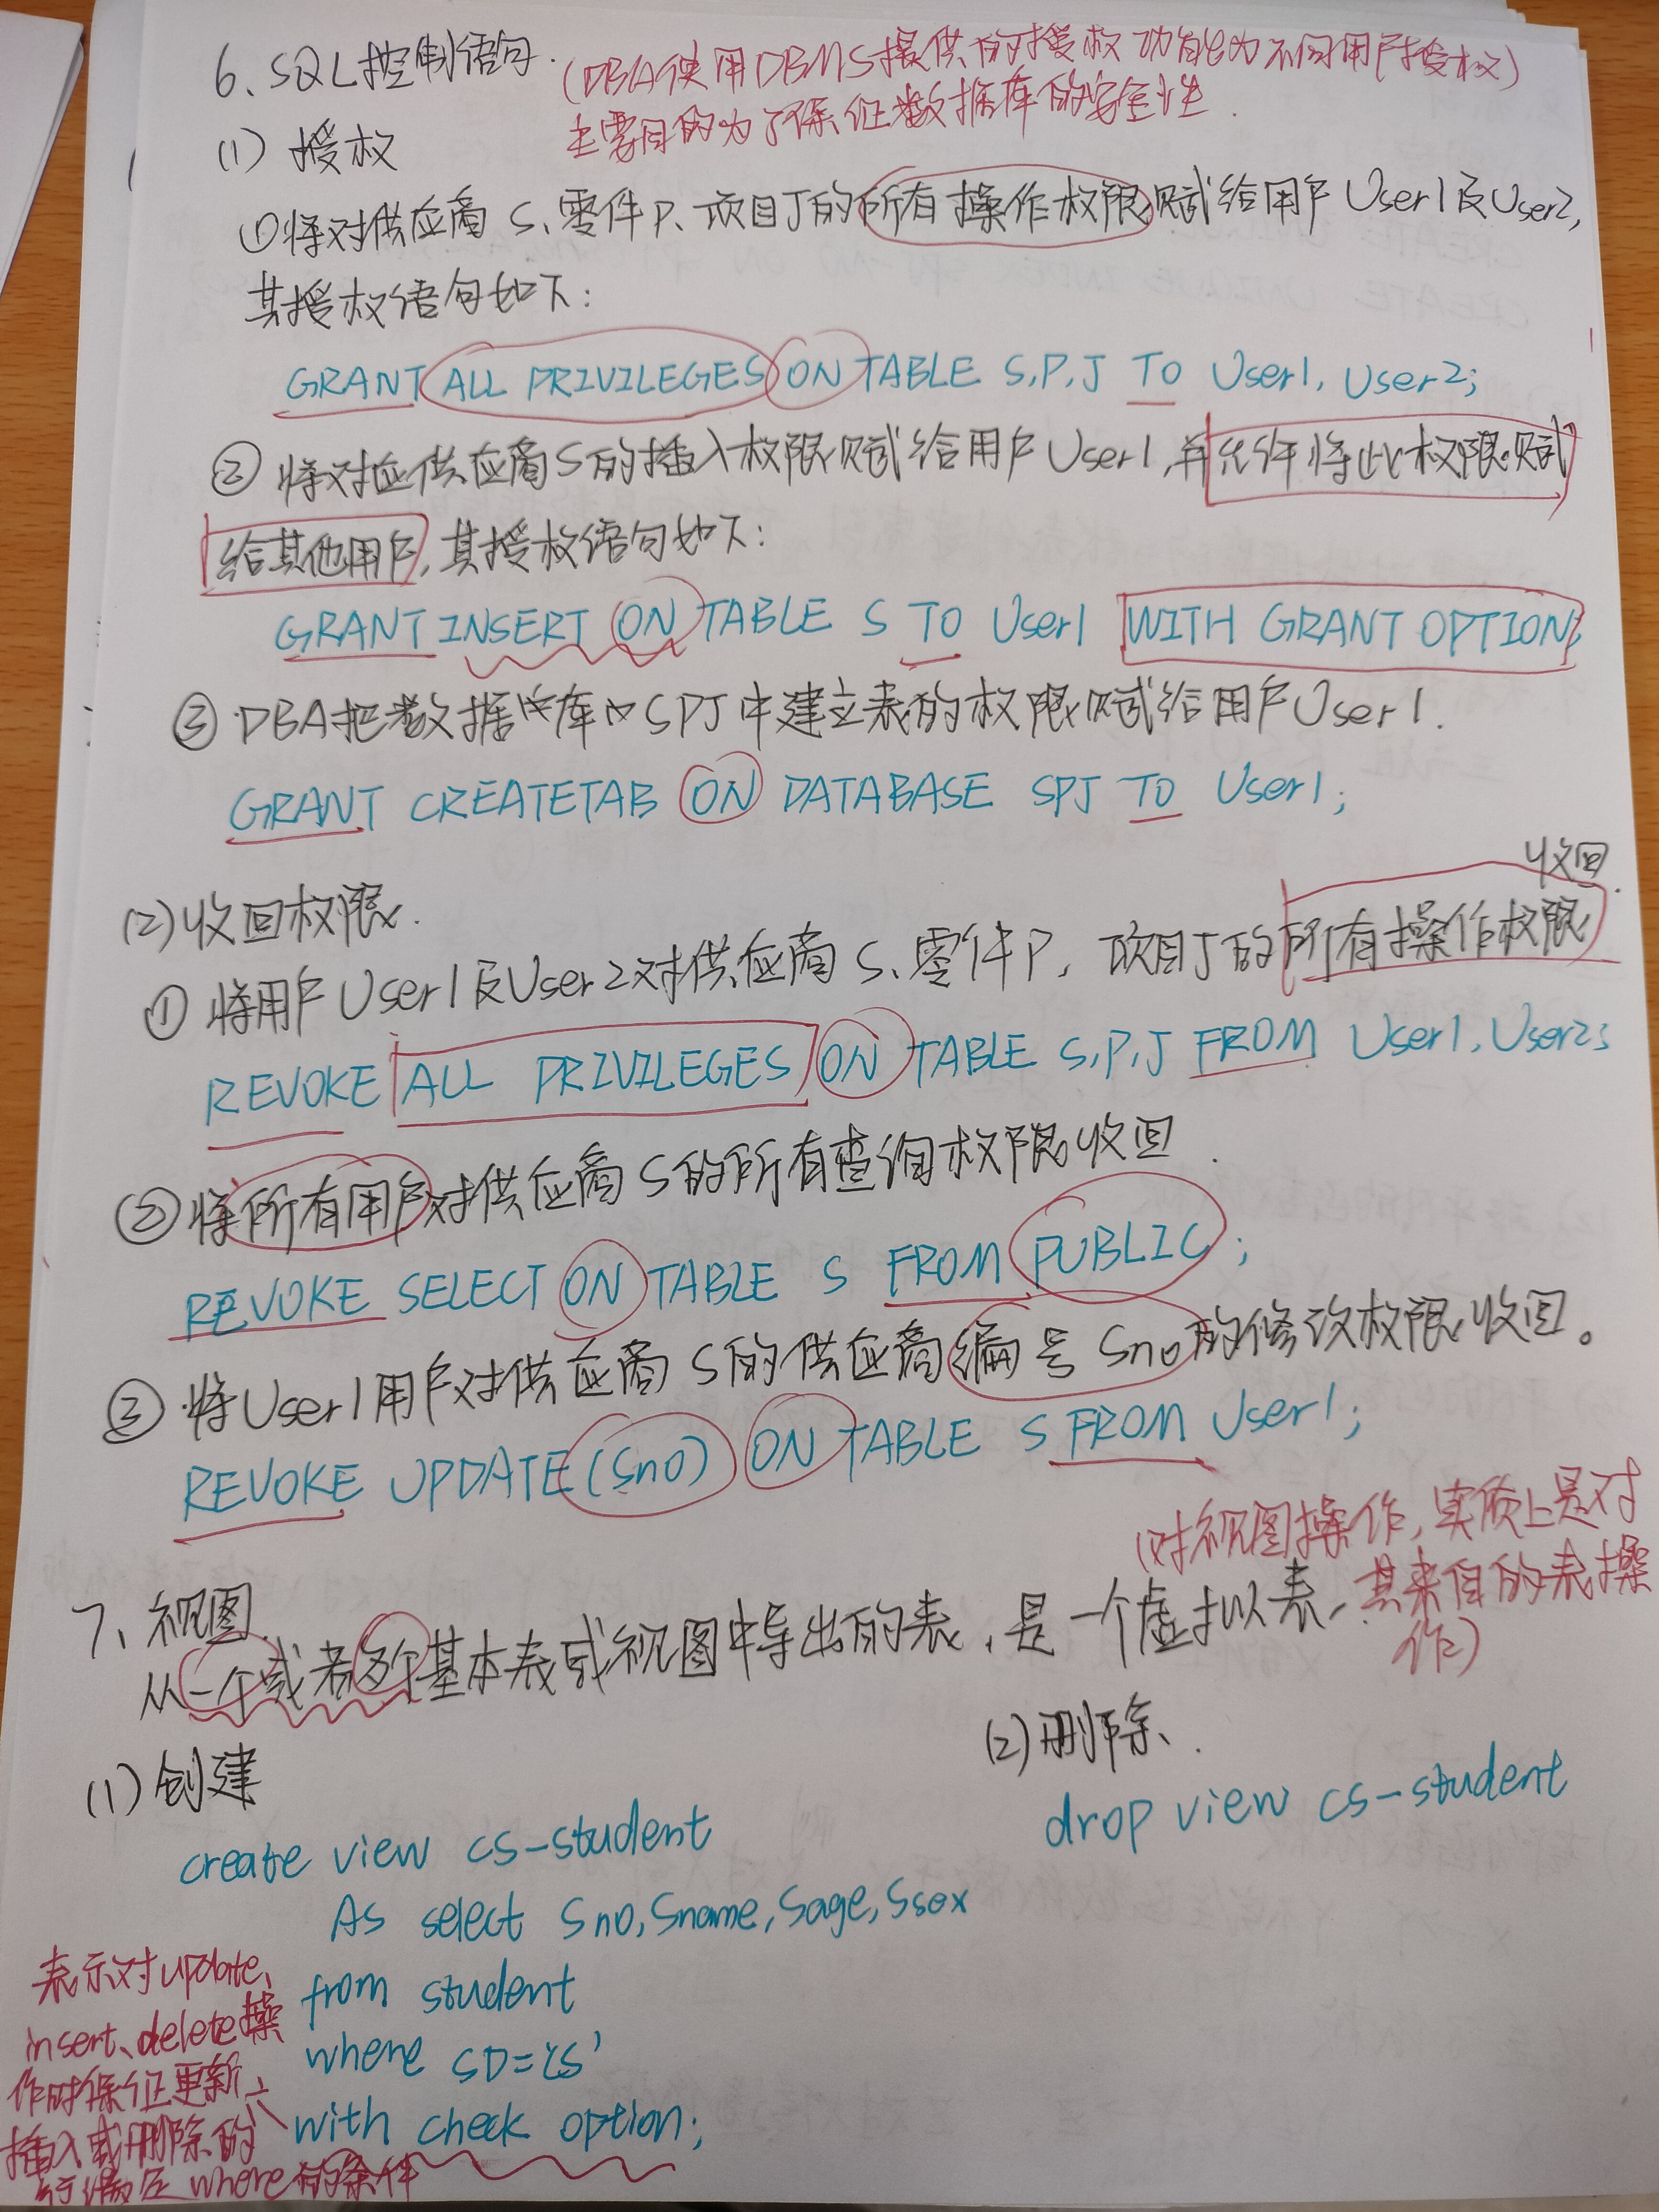 6、SQL控制语句.(DBA使用DBMS提供的授权功能为不同用户授权)
主要目的为了保证数据库的安全性.
(1) 授权
①将对供应商S、零件P、项目J的所有操作权限赋给用户User1及User2,
其授权语句如下:
GRANT ALL PRIVILEGES ON TABLE S,P,J TO User1, User2;
② 将对应供应商S的插入权限赋给用户User1,并允许将此权限赋
给其他用户,其授权语句如下:
GRANT INSERT ON TABLE S TO User1 WITH GRANT OPTION;
③ DBA把数据库SPJ中建立表的权限赋给用户User1.
GRANT CREATETAB ON DATABASE SPJ TO User1;
(2)收回权限.
① 将用户User1及User2对供应商S、零件P, 项目J的所有操作权限收回.
REVOKE ALL PRIVILEGES ON TABLE S,P,J FROM User1,User2;
②将所有用户对供应商S的所有查询权限收回.
REVOKE SELECT ON TABLE S FROM PUBLIC;
③ 将User1用户对供应商S的供应商编号Sno的修改权限收回。
REVOKE UPDATE(Sno) ON TABLE S FROM User1;
7、视图.
(对视图操作,实质上是对
其来自的表操
作)
从一个或者多个基本表或视图中导出的表,是一个虚拟表,
(1)创建
create view cs-student
As select Sno,Sname,Sage,Ssex
from student
where SD='CS'
with check option;
表示对update、
insert、delete操
作时保证更新、
插入或删除的
行满足where的条件
(2)删除.
drop view cs-student